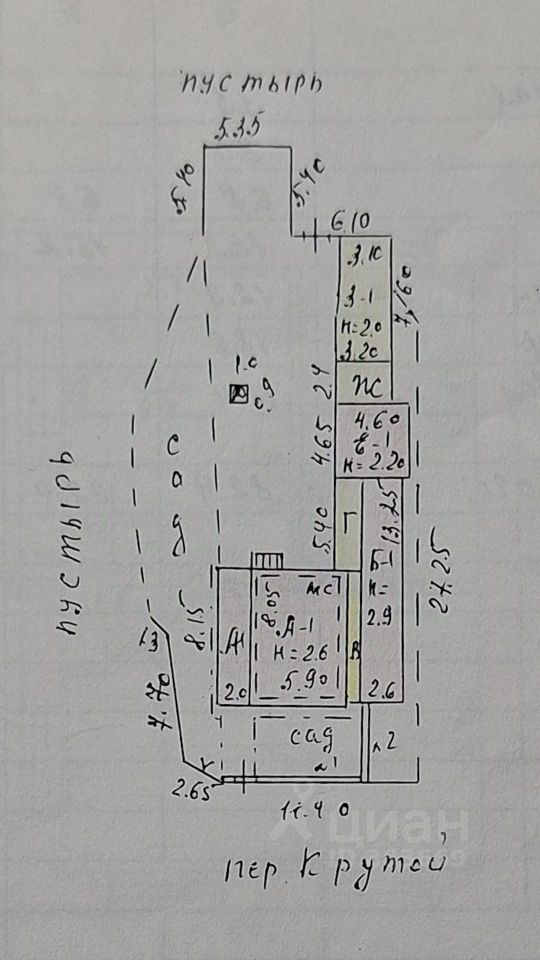 пустырь
5.35
5.40
5.40
6.10
3.10
З-1
н=2.0
3.20
7.60
1.0
0.9
2.4
Ж
4.60
Е-1
н=2.20
4.65
сад
пустырь
5.40
Г
13.25
Б-1
н=
2.9
2.6
27.25
8.15
8.05
жс
А-1
н=2.6
5.90
В
2.0
13
7.70
2.65
сад
л2
11.40
циан
пер. Крутой